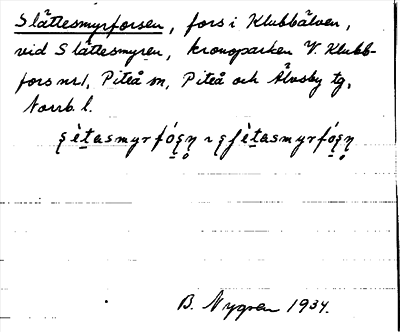 Slåttesmyrforsen, fors i Klubbälven,
vid Slåttesmyren, kronoparken V. Klubb-
fors nr 1, Piteå sn, Piteå och Älvsby tg,
Norrb l.
B. Nygren 1934.